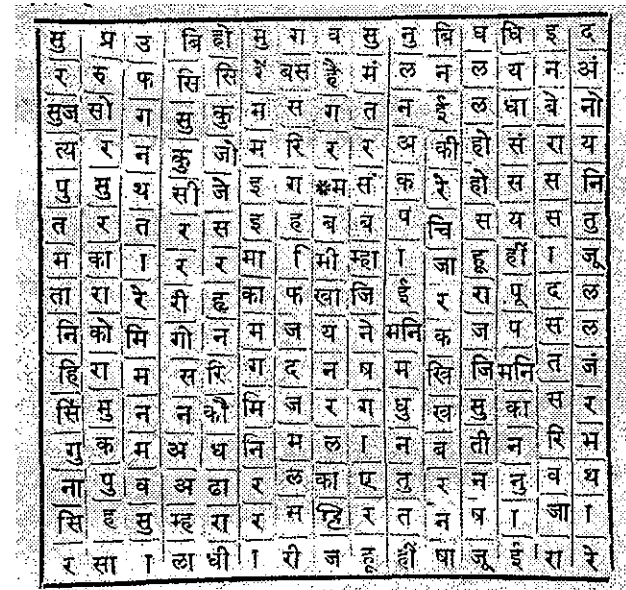 सु प्र उ बि हो मु ग व सु नु बि घ धि इ द
र रु फ सि सि रें बस है मं ल न ल य न अं
सुज सो ग सु कु म स ग त न ईं ल धा बे नो
त्य र न कु जो म रि र र अ की हो सं रा य
पु सु थ सी जे इ ग *म सं क रे हो स स नि
त र त र स इ ह ब ब प चि स य स तु
म का ा र र मा मि मी म्हा ा जा हू हीं ा जू
ता रा रे री ह्र का फ खा जि ईं र रा पू द ल
नि को मि गो न म ज य ने मनि क ज प स ल
हि रा म स रि ग द न ष म खि जि मनि त जं
सिं मु न न कौ मि ज र ग धु ख सु का स र
गु क म अ ध नि म ल ा न ब ती न रि भ
ना पु व अ ढा र ल का ए तु र न नु व थ
सि ह सु म्ह रा र स हि र त न ष ा जा ा
र सा ा ला धी ा री ज हू हीं षा जू ईं रा रे